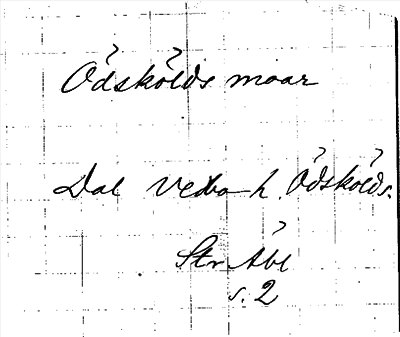 Ödskölds moar
Dal Vedbo h. Ödskölds.
Str Åbl
s. 2